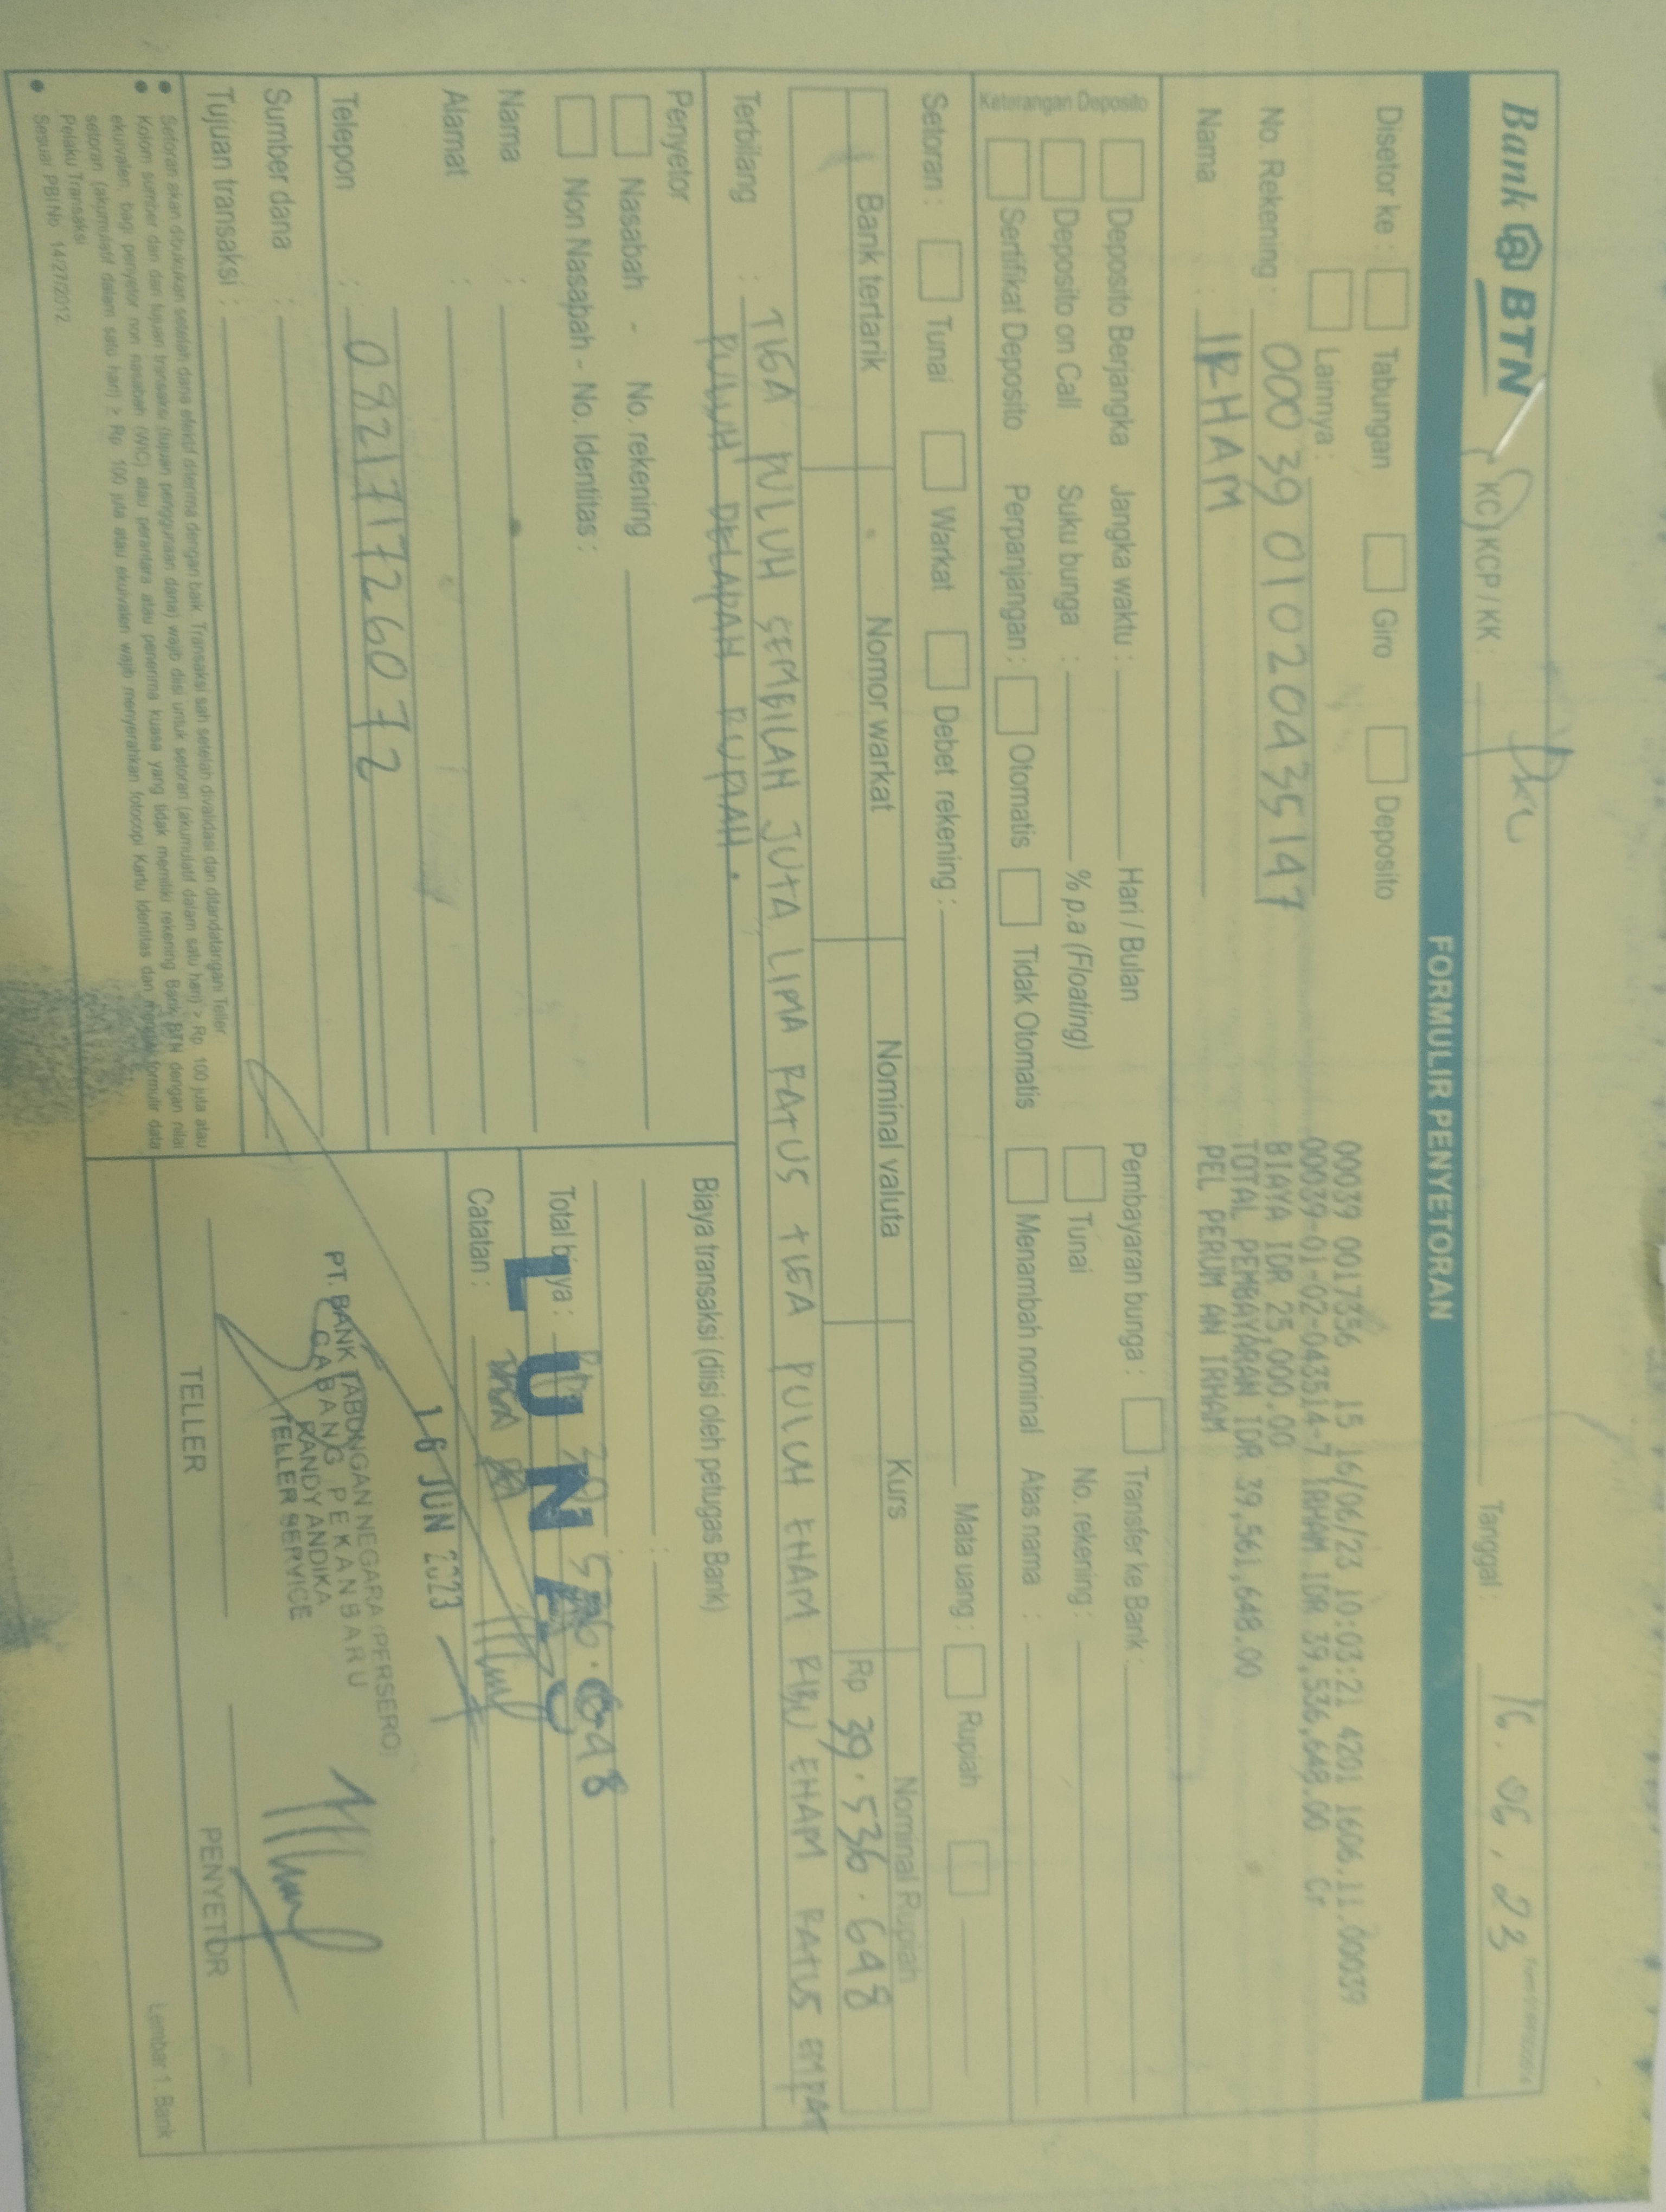 Bank BTN
KC / KCP / KK : Pku
Tanggal : 16. 06. 23
FORMULIR PENYETORAN
Disetor ke : Tabungan Giro Deposito
Lainnya :
No. Rekening : 00039 01020435147
Nama : IRHAM
00039 0017356 15 16/06/23 10:03:21 4201 1606.11.00039
00039-01-02-043514-7 IRHAM IDR 39,536,648.00 Cr
BIAYA IDR 25,000.00
TOTAL PEMBAYARAN IDR 39,561,648.00
PEL PERUM AN IRHAM
Keterangan Deposito
Deposito Berjangka Jangka waktu : Hari / Bulan Pembayaran bunga : Transfer ke Bank :
Deposito on Call Suku bunga : % p.a (Floating) Tunai No. rekening :
Sertifikat Deposito Perpanjangan : Otomatis Tidak Otomatis Menambah nominal Atas nama :
Setoran : Tunai Warkat Debet rekening : Mata uang : Rupiah
Bank tertarik Nomor warkat Nominal valuta Kurs Nominal Rupiah
Rp 39.536.648
Terbilang : TIGA PULUH SEMBILAN JUTA LIMA RATUS TIGA PULUH ENAM RIBU ENAM RATUS EMPAT
PULUH DELAPAN RUPIAH.
Penyetor
Nasabah - No. rekening
Non Nasabah - No. Identitas :
Nama :
Alamat :
Telepon : 082171726072
Sumber dana :
Tujuan transaksi :
Biaya transaksi (diisi oleh petugas Bank)
Total biaya :
LUNAS
Catatan :
16 JUN 2023
PT. BANK TABUNGAN NEGARA (PERSERO)
CABANG PEKANBARU
RANDY ANDIKA
TELLER SERVICE
TELLER PENYETOR
• Setoran akan dibukukan setelah dana efektif diterima dengan baik. Transaksi sah setelah divalidasi dan ditandatangani Teller
• Kolom sumber dan dan tujuan transaksi (tujuan penggunaan dana) wajib diisi untuk setoran (akumulatif dalam satu hari) > Rp. 100 juta atau
ekuivalen, bagi penyetor non nasabah (WIC) atau perantara atau penerima kuasa yang tidak memiliki rekening Bank BTN dengan nilai
setoran (akumulatif dalam satu hari) ≥ Rp 100 juta atau ekuivalen wajib menyerahkan fotocopi Kartu Identitas dan mengisi formulir data
Pelaku Transaksi
• Sesuai PBI No. 14/27/2012
Lembar 1. Bank